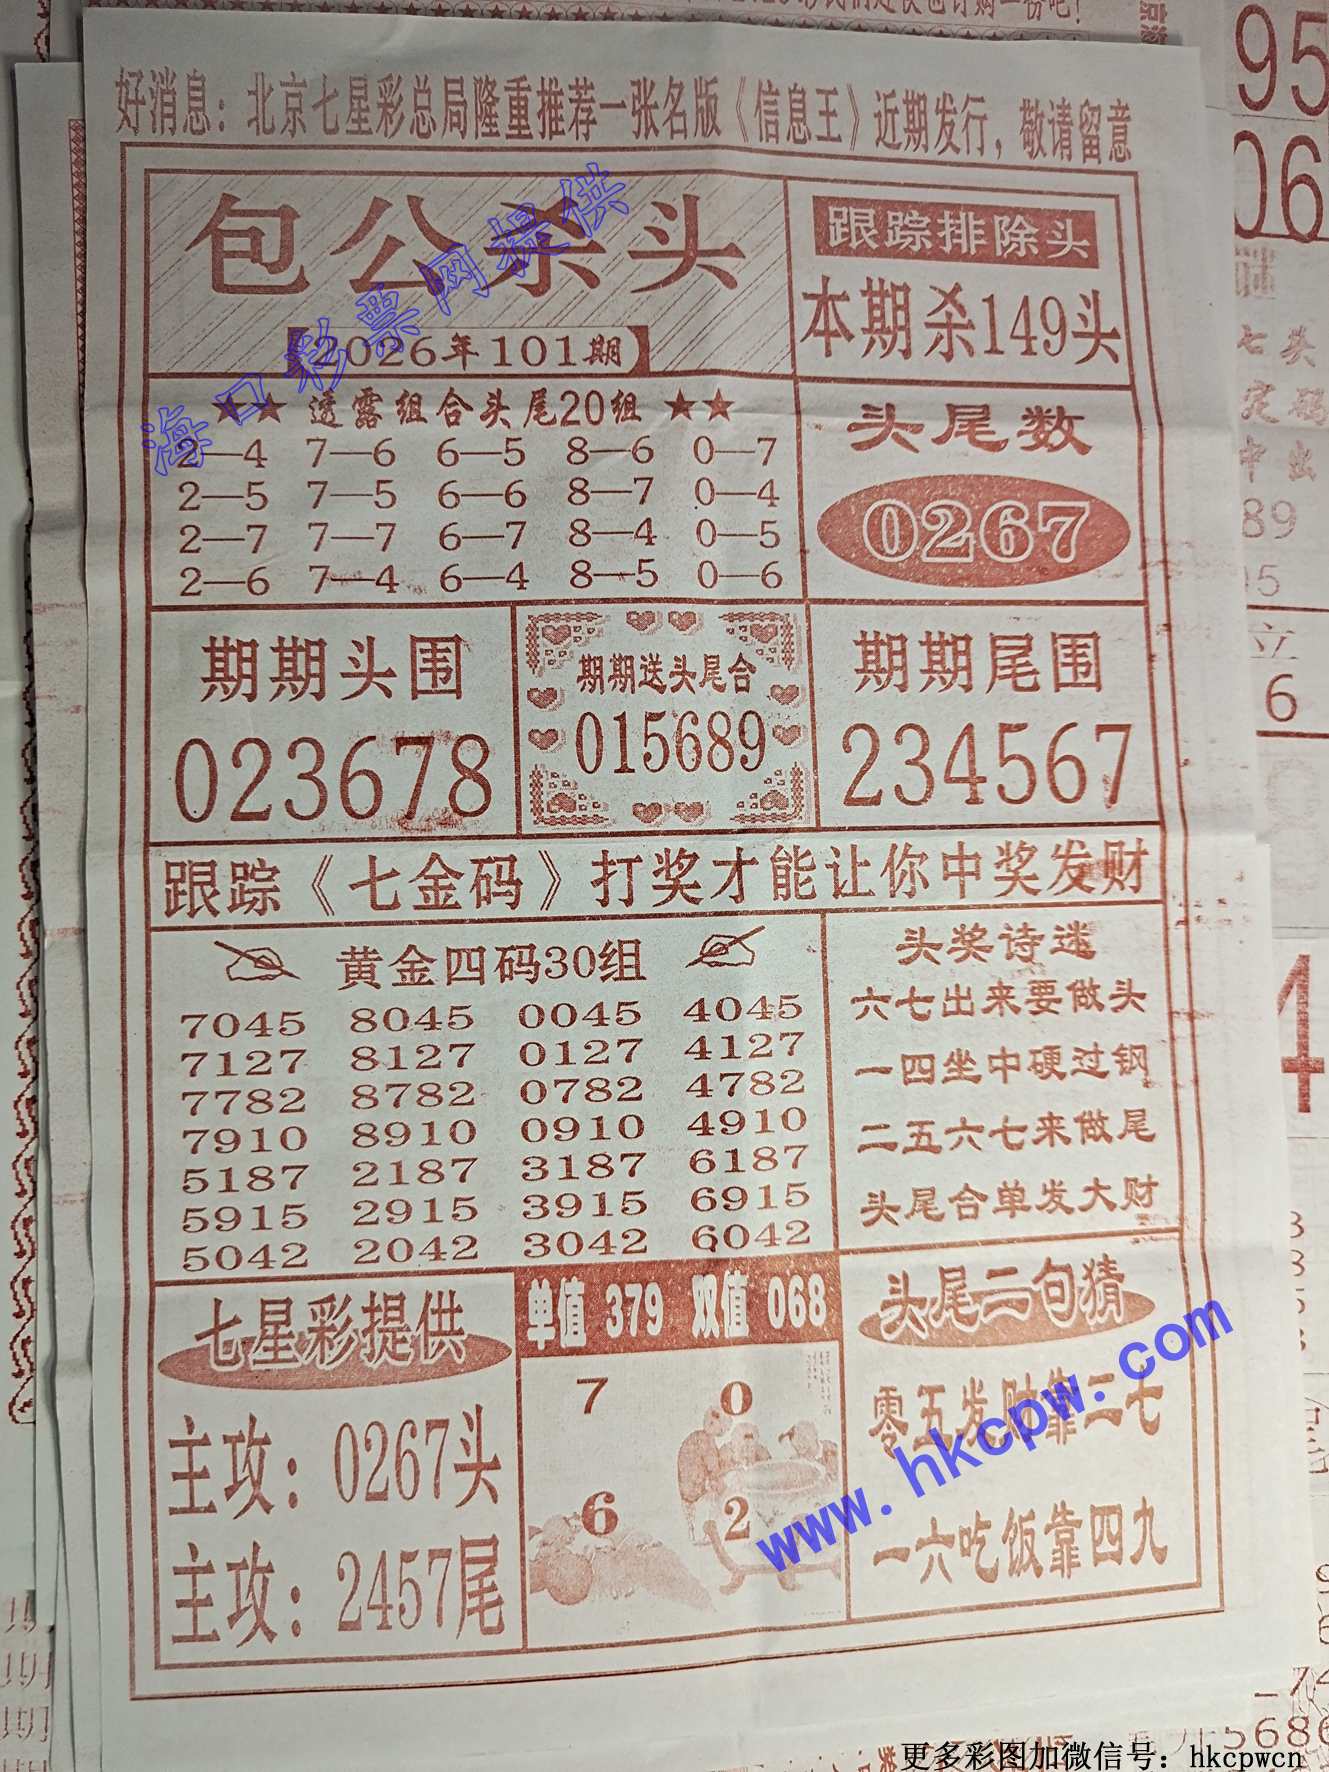 好消息：北京七星彩总局隆重推荐一张名版《信息王》近期发行，敬请留意
包公杀头
【2026年101期】
跟踪排除头
本期杀149头
★★ 透露组合头尾20组 ★★
2—4 7—6 6—5 8—6 0—7
2—5 7—5 6—6 8—7 0—4
2—7 7—7 6—7 8—4 0—5
2—6 7—4 6—4 8—5 0—6
头尾数
0267
期期头围
023678
期期送头尾合
015689
期期尾围
234567
跟踪《七金码》打奖才能让你中奖发财
黄金四码30组
7045 8045 0045 4045
7127 8127 0127 4127
7782 8782 0782 4782
7910 8910 0910 4910
5187 2187 3187 6187
5915 2915 3915 6915
5042 2042 3042 6042
头奖诗迷
六七出来要做头
一四坐中硬过钢
二五六七来做尾
头尾合单发大财
七星彩提供
主攻：0267头
主攻：2457尾
单值 379 双值 068
7 0
6 2
头尾二句猜
零五发财靠二七
一六吃饭靠四九
海口彩票网提供
www.hkcpw.com
95
06
更多彩图加微信号：hkcpwcn